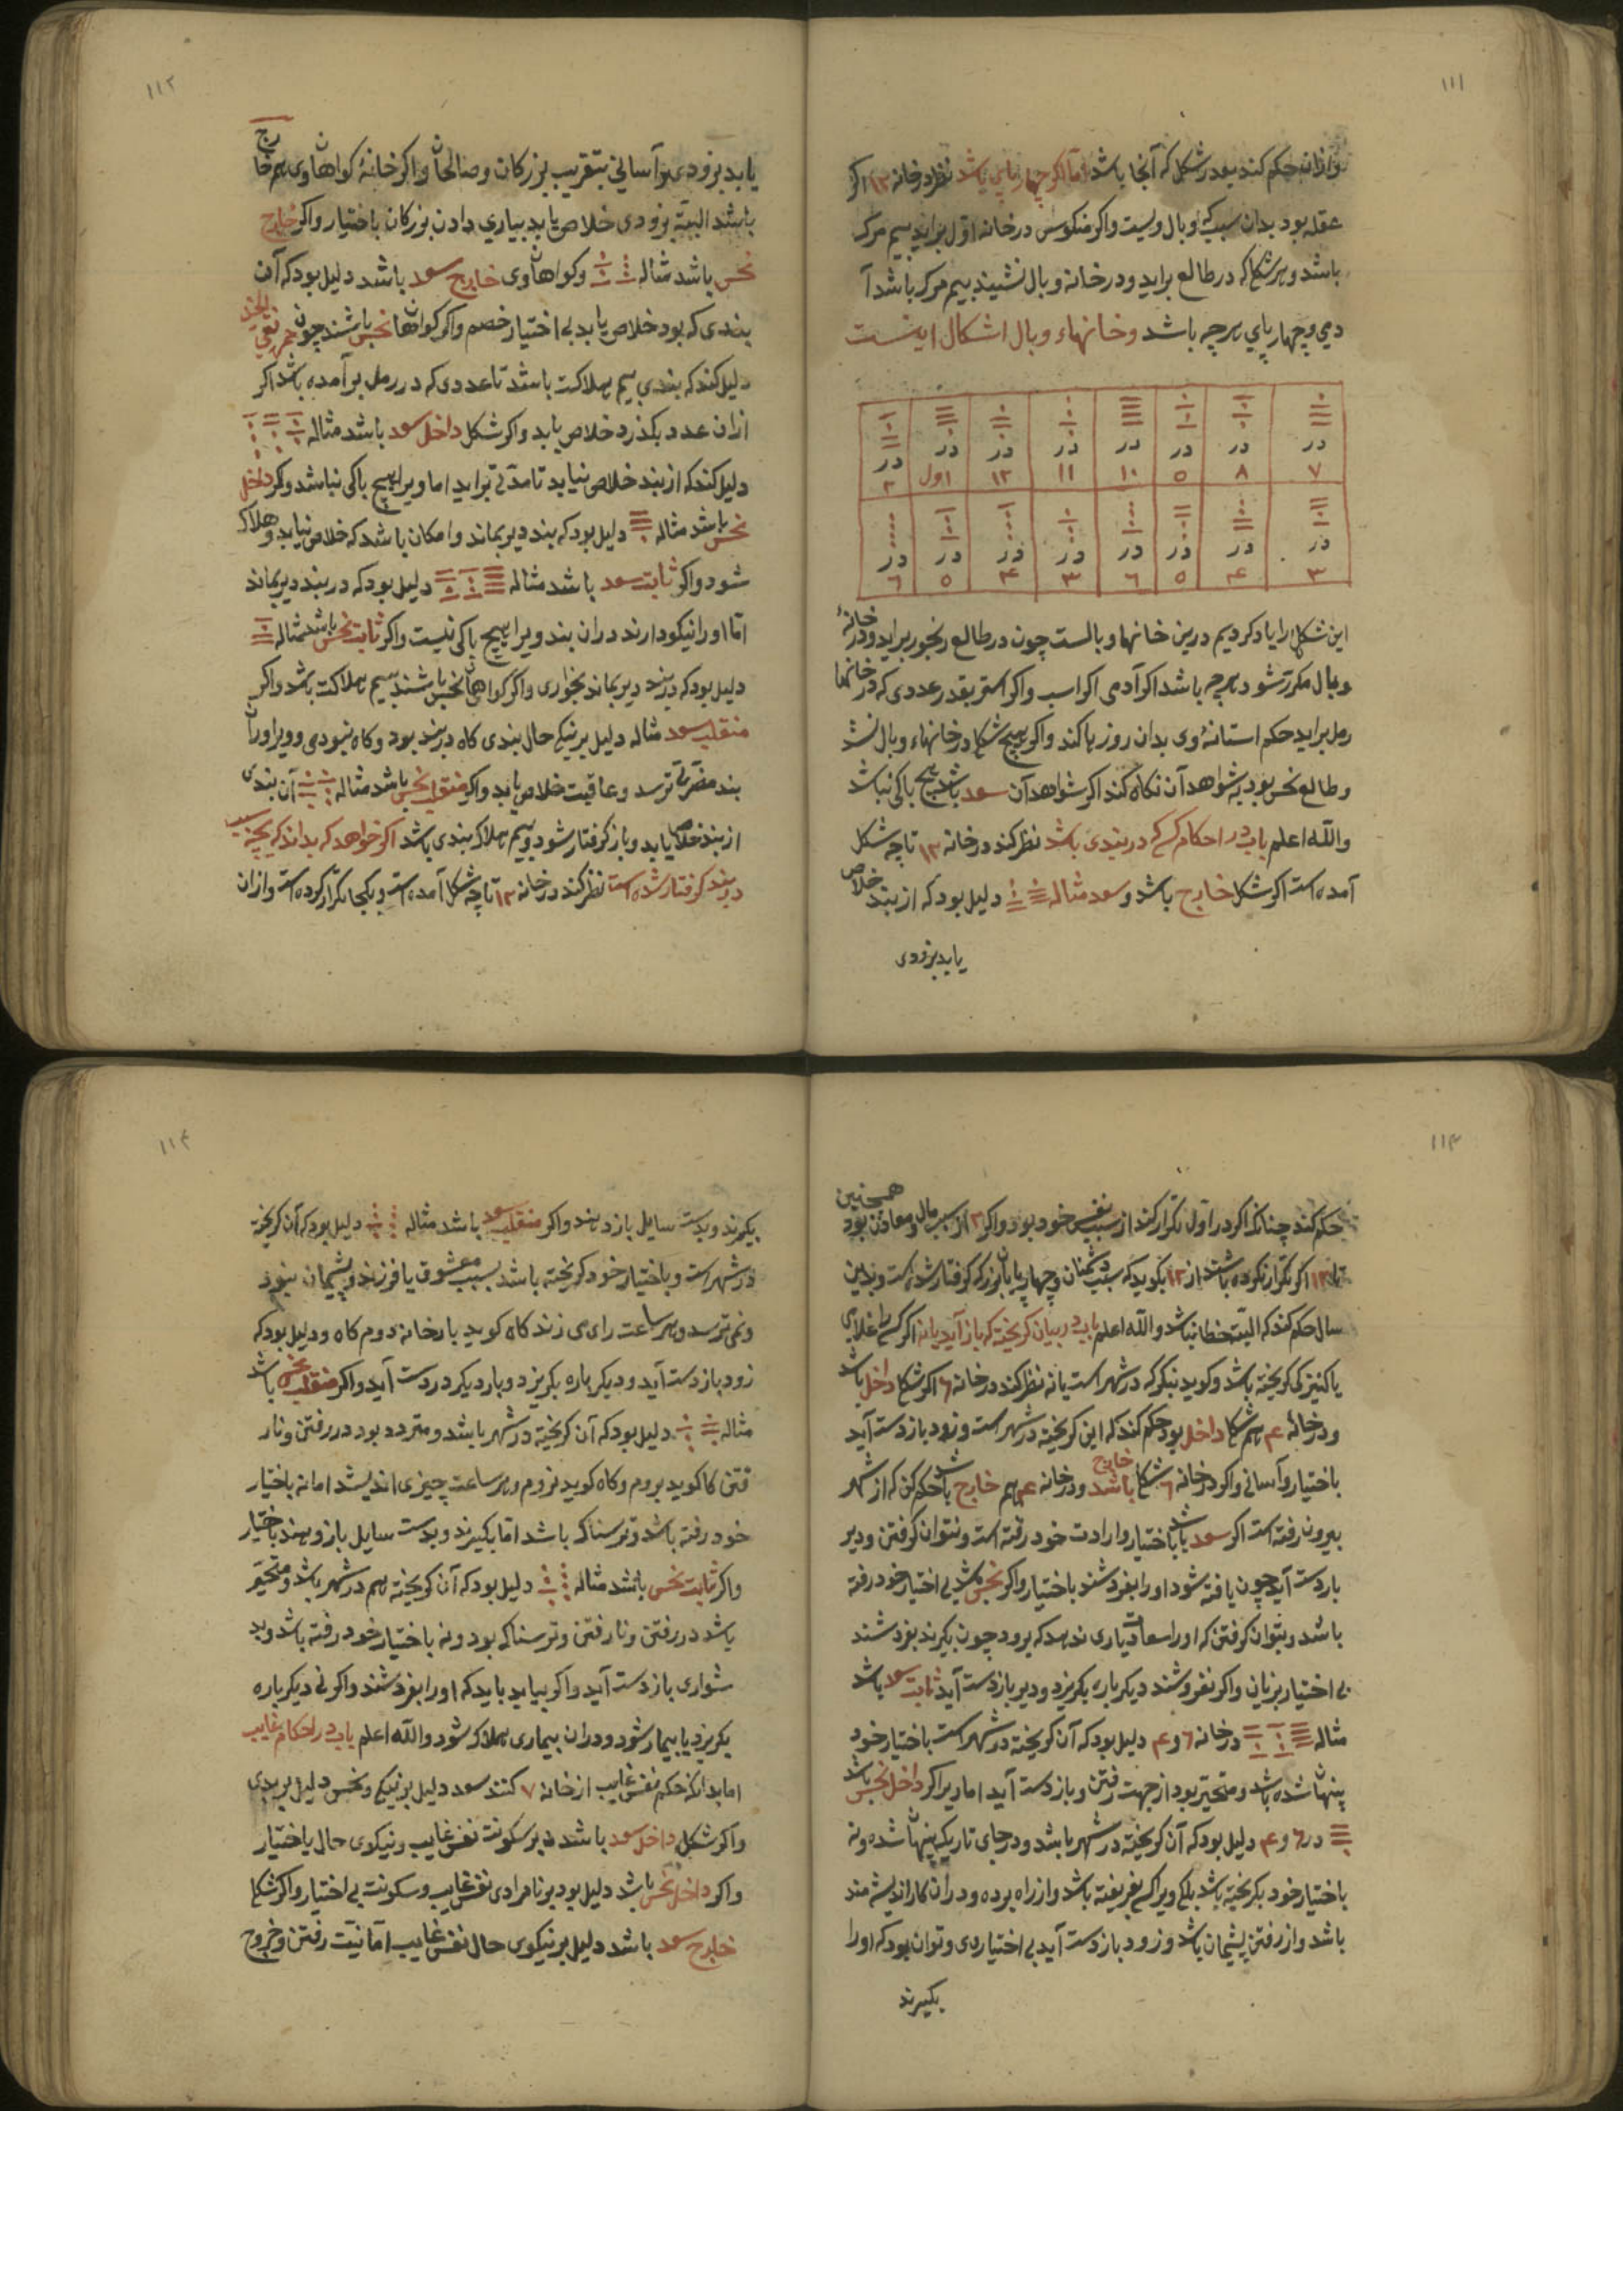 ١١١
وازان حکم کند بود در شکل که آنجا باشد اما اکر چهارپای باشد نظر در خانه ١٢ اکر
عقله بود بدان سبب که وبال ویست واکر منکوس در خانه اول براید بیم مرک
باشد وهر شکل که در طالع براید ودر خانه وبال نشیند بیم مرک باشد آ
دمی وچهارپای هرچه باشد وخانهاء وبال اشکال اینست
در ٧ در ٨ در ٥ در ١٠ در ١١ در ١٢ در اول در ٢
در ٣ در ۴ در ٥ در ٦ در ٣ در ۴ در ٥ در ٦
این شکل را یاد کردیم درین خانها وبالست چون در طالع رنجور براید ودر خانهٔ
وبال مکرر شود هرچه باشد اکر آدمی اکر اسب واکر استر بقدر عددی که در خانها
رمل براید حکم استانهٔ وی بدان روزها کند واکر هیچ شکل در خانهاء وبال نشد
وطالع نحس بود بشواهد آن نکاه کند اکر شواهد آن سعد باشد هیچ باکی نباشد
والله اعلم باب در احکام کسی که در بندی باشد نظر کند در خانه ١٢ تا چه شکل
آمده است اکر شکل خارج باشد وسعد مثاله دلیل بود که از بند خلاص
یابد بزودی
١١٢
یابد بزودی وآسانی بتقریب بزرکان وصالحان واکر خانهٔ کواهان وی هم خارج
باشد البته بزودی خلاص یابد بیاری دادن بزرکان باختیار واکر خارج
نحس باشد مثاله وکواهان وی خارج سعد باشد دلیل بود که آن
بندی که بود خلاص یابد بی اختیار خصم واکر کواهان نحس باشند چون حمره نقی الخد
دلیل کند که بندی بیم هلاکت باشد تا عددی که در رمل برآمده باشد اکر
ازان عدد بکذرد خلاص یابد واکر شکل داخل سعد باشد مثاله
دلیل کند که از بند خلاص نیابد تا مدتی براید اما ویرا هیچ باکی نباشد وکر داخل
نحس باشد مثاله دلیل بود که بند دیر بماند وامکان باشد که خلاص نیابد وهلاک
شود واکر ثابت سعد باشد مثاله دلیل بود که در بند دیر بماند
اما اورا نیکو دارند دران بند ویرا هیچ باکی نیست واکر ثابت نحس باشد مثاله
دلیل بود که در بند دیر بماند بخواری واکر کواهان نحس باشند بیم هلاکت باشد واکر
منقلب سعد مثاله دلیل بر نیکی حال بندی کاه در بند بود وکاه نبودی وویرا وران
بند مضرتی نرسد وعاقبت خلاص یابد واکر منقلب نحس باشد مثاله آن بندی
از بند خلاص یابد وباز کرفتار شود وبیم هلاک بندی باشد اکر خواهد که بداند که بچه سبب
در بند کرفتار شده است نظر کند در خانه ١٢ تا چه شکل آمده است وبکجا تکرار کرده است وازان
١١٣
حکم کند چنانکه اکر در اول تکرار کند از سبب نفس خود بود واکر ٢ از سبب مال ومعاون بود همچنین
تا ١٢ اکر تکرار نکرده باشد از ١٢ بکوید که سبب دشمنان وچهارپایان بزرک کرفتار شده است وبدین
سان حکم کند که البته خطا نباشد والله اعلم باب در بیان کریخته که باز آید یا نه اکر کسی را غلامی
یا کنیزکی کریخته باشد وکوید بنکر که در شهر است یا نه نظر کند در خانه ٦ اکر شکل داخل باشد
ودر خانه ۴ هم شکل داخل بود حکم کند که این کریخته در شهر است وزود باز دست آید
باختیار وآسانی واکر در خانه ٦ شکل خارج باشد ودر خانه ۴ هم خارج باشد حکم کن که از شهر
بیرون رفته است اکر سعد باشد باختیار وارادت خود رفته است ونتوان کرفتن ودیر
باز دست آید چون یافته شود اورا بفروشند باختیار واکر نحس باشد بی اختیار خود رفته
باشد وبتوان کرفتن که اورا سعادت یاری ندهد که برود چون بکیرند بفروشند
بی اختیار بزیان واکر نفروشند دیکر باره بکریزد ودیر باز دست آید ثابت سعد باشد
مثاله در خانه ٦ و ۴ دلیل بود که آن کریخته در شهر است باختیار خود
پنهان شده باشد ومتحیر بود از جهت رفتن وباز دست آید اما دیر اکر داخل نحس باشد
در ٦ و ۴ دلیل بود که آن کریخته در شهر باشد ودر جای تاریک پنهان شده ونه
باختیار خود بکریخته باشد بلکه ویرا کسی بفریفته باشد واز راه برده ودران کار اندیشه مند
باشد واز رفتن پشیمان باشد وزود باز دست آید بی اختیار وی وتوان بود که اورا
بکیرند
١١۴
بکیرند وبدست سایل باز دهند واکر منقلب سعد باشد مثاله دلیل بود که آن کریخته
در شهر است وباختیار خود کریخته باشد بسبب معشوق یا فرزند وپشیمان بنود
ونمی ترسد وهر ساعت رای می زند کاه کوید بار خانه روم کاه ودلیل بود که
زود باز دست آید ودیکر باره بکریزد وبار دیکر در دست آید واکر منقلب نحس باشد
مثاله دلیل بود که آن کریخته در شهر باشد ومتردد بود در رفتن ونار
فتن کا کوید بروم وکاه کوید نروم وهر ساعت چیزی اندیشد اما نه باختیار
خود رفته باشد وترسناک باشد اما بکیرند وبدست سایل باز دهند باختیار
واکر ثابت نحس باشد مثاله دلیل بود که آن کریخته هم در شهر باشد ومتحیر
باشد در رفتن ونارفتن وترسناک بود ونه باختیار خود رفته باشد وبد
شواری باز دست آید واکر بیاید باید که اورا بفروشند واکر نی دیکر باره
بکریزد یا بیمار شود ودران بیماری هلاک شود والله اعلم باب در احکام غایب
اما بدانکه حکم نفس غایب از خانه ٧ کنند سعد دلیل بر نیکی ونحس دلیل بر بدی
واکر شکل داخل سعد باشد بر سکونت نفس غایب ونیکوی حال باختیار
واکر داخل نحس باشد دلیل بود بر نامرادی نفس غایب وسکونت بی اختیار واکر شکل
خارج سعد باشد دلیل بر نیکوی حال نفس غایب اما نیت رفتن وخروج